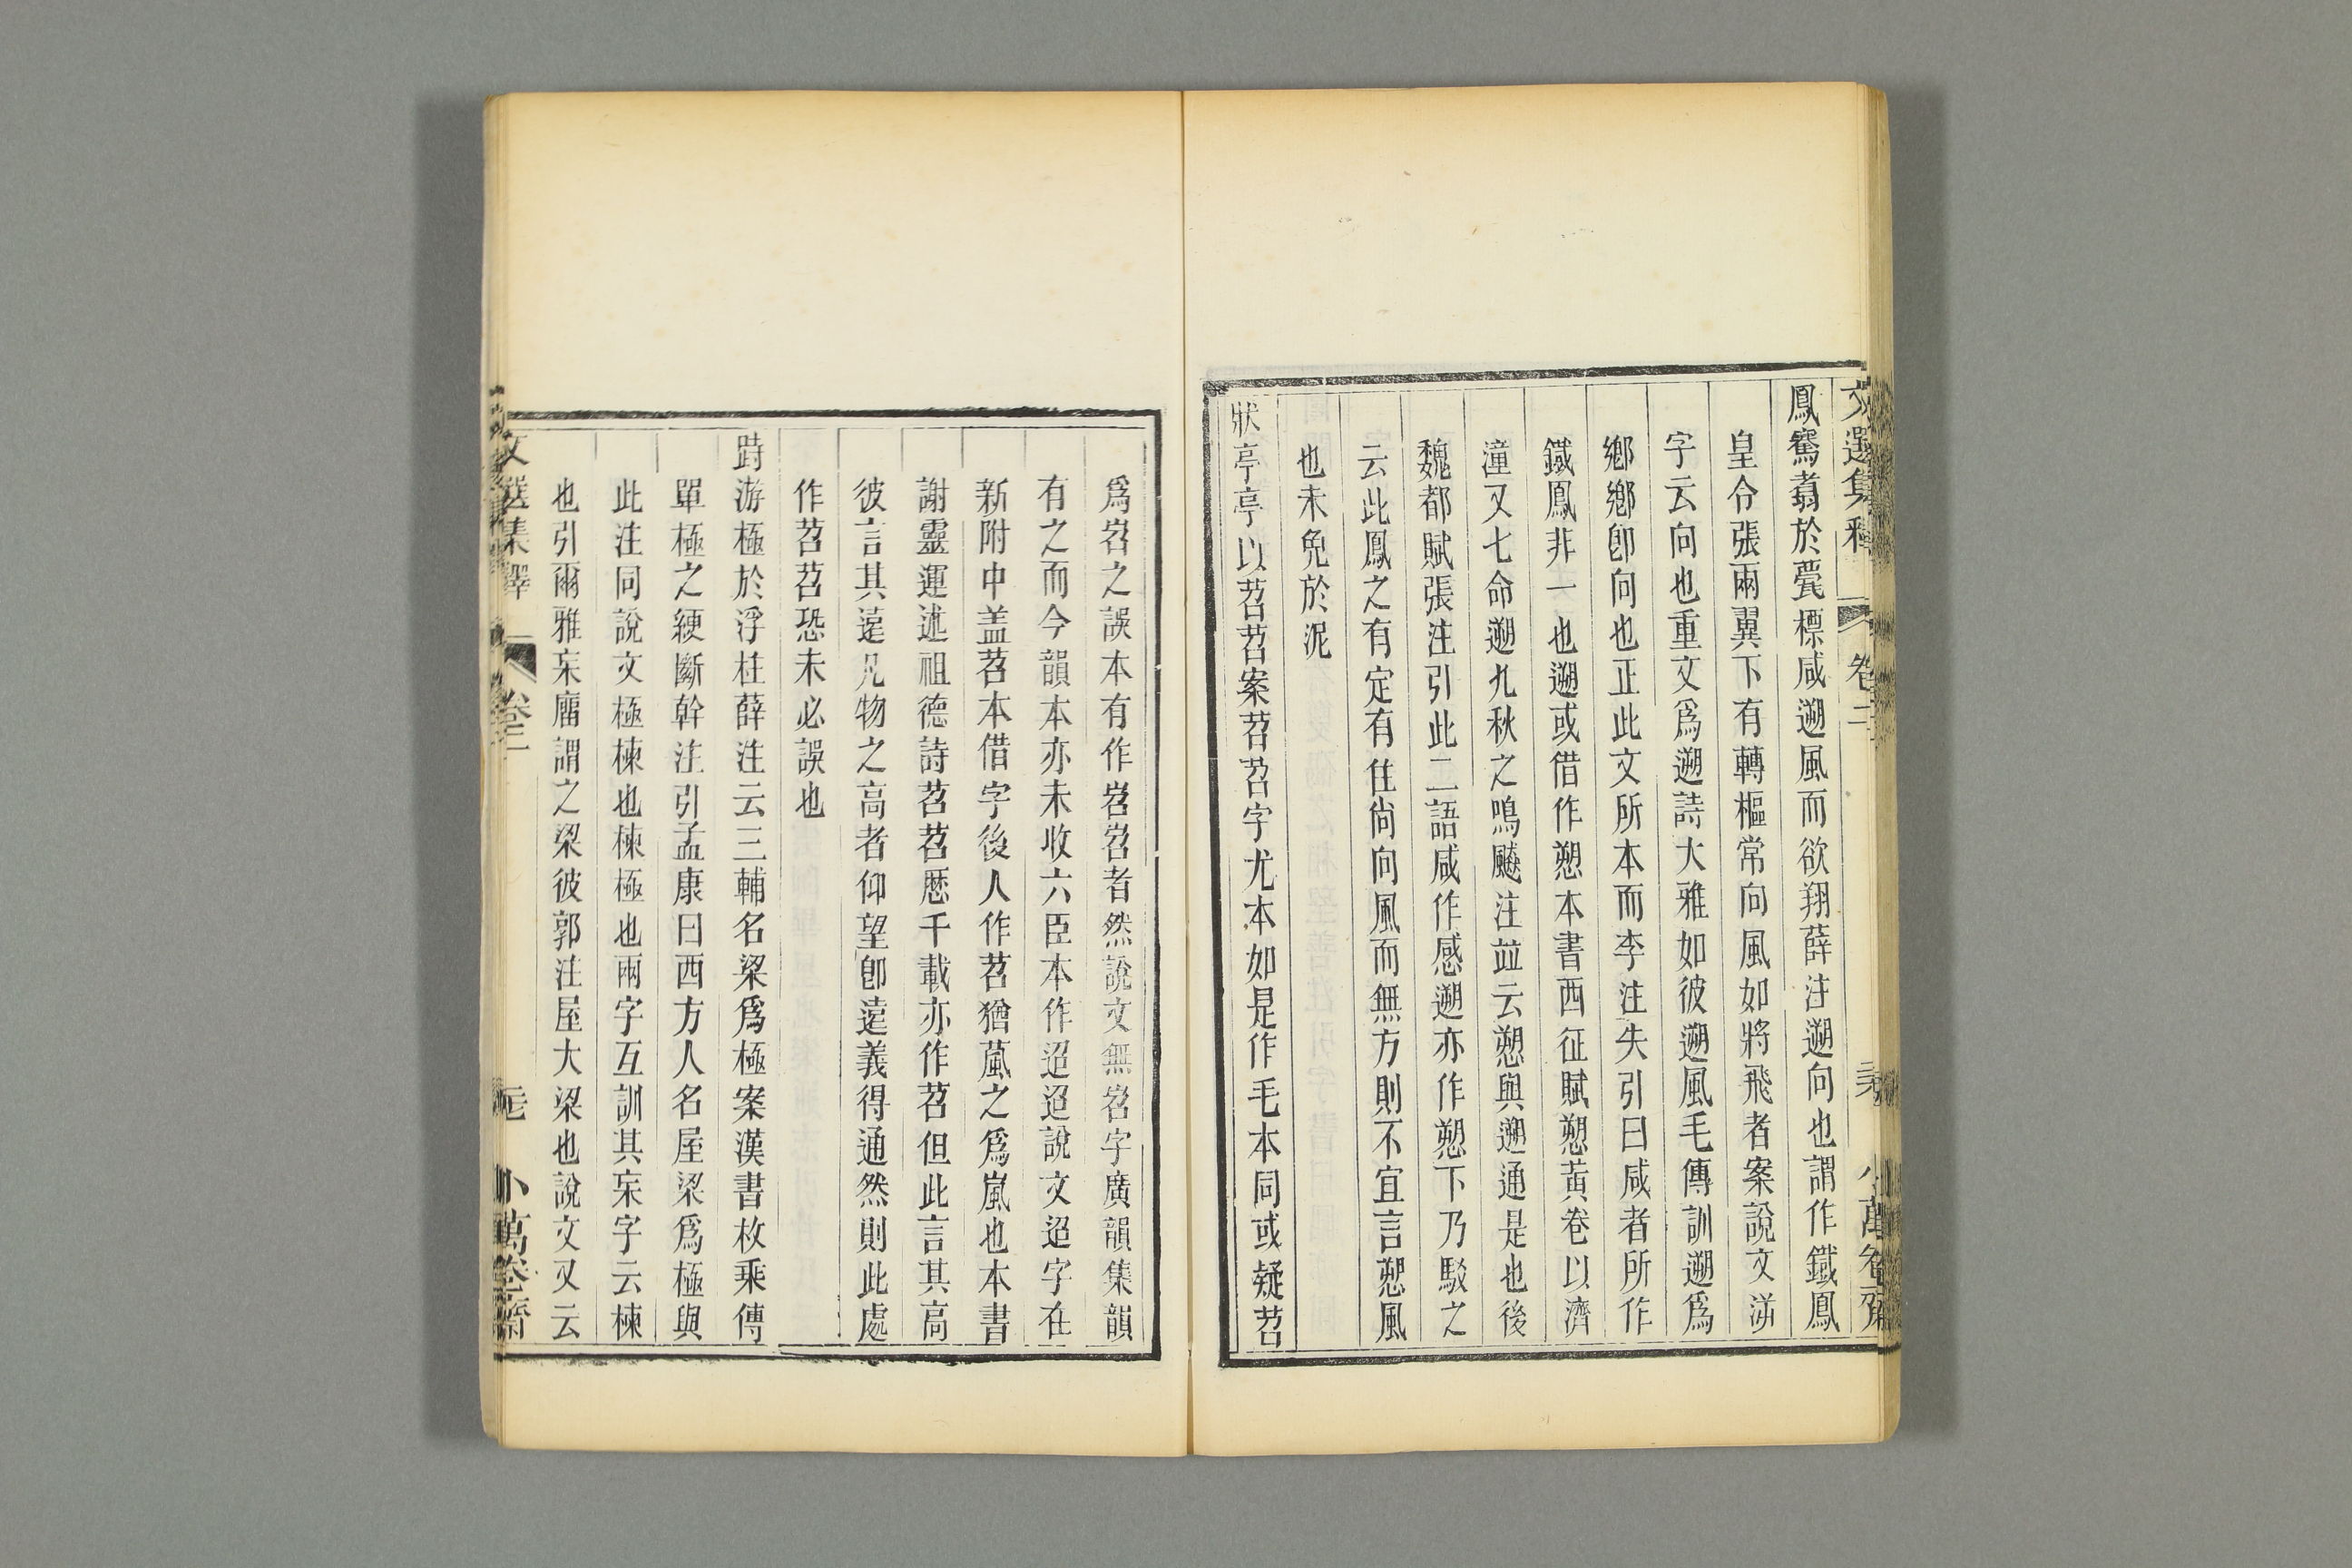 文選集釋 卷二 小萬卷齋
鳳騫翥於甍標咸遡風而欲翔薛注遡向也謂作鐵鳳
皇令張兩翼下有轉樞常向風如將飛者案說文㴑
字云向也重文爲遡詩大雅如彼遡風毛傳訓遡爲
鄉鄉卽向也正此文所本而李注失引曰咸者所作
鐵鳳非一也遡或借作愬本書西征賦愬黃卷以濟
潼又七命遡九秋之鳴飇注竝云愬與遡通是也後
魏都賦張注引此二語咸作感遡亦作愬下乃駁之
云此鳳之有定有住尚向風而無方則不宜言愬風
也未免於泥
狀亭亭以苕苕案苕苕字尤本如是作毛本同或疑苕
爲岧之誤本有作岧岧者然說文無岧字廣韻集韻
有之而今韻本亦未收六臣本作迢迢說文迢字在
新附中盖苕本借字後人作苕猶葻之爲嵐也本書
謝靈運述祖德詩苕苕歷千載亦作苕但此言其高
彼言其遠凡物之高者仰望卽遠義得通然則此處
作苕苕恐未必誤也
跱游極於浮柱薛注云三輔名梁爲極案漢書枚乘傳
單極之綆斷幹注引孟康曰西方人名屋梁爲極與
此注同說文極棟也棟極也兩字互訓其宋字云棟
也引爾雅宋廇謂之梁彼郭注屋大梁也說文又云
文選集釋 卷二 小萬卷齋